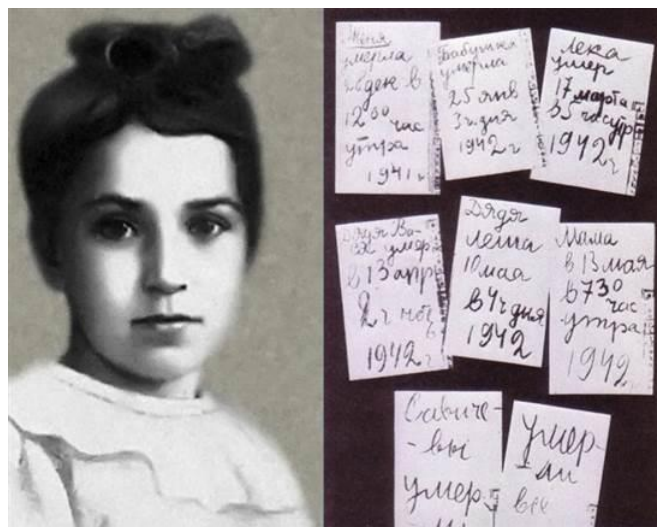 Женя
умерла
28 дек в
12 00 час
утра
1941 г
Бабушка
умерла
25 янв
3 ч. дня
1942 г
Лека
умер
17 марта
в 5 час утр
1942 г
Дядя Ва-
ся умер
в 13 апр
2 ч ночь
1942 г
Дядя
Леша
10 мая
в 4 ч дня
1942
Мама
в 13 мая
в 7 30
час
утра
1942
Савиче-
-вы
умер-
умер-
-ли
все